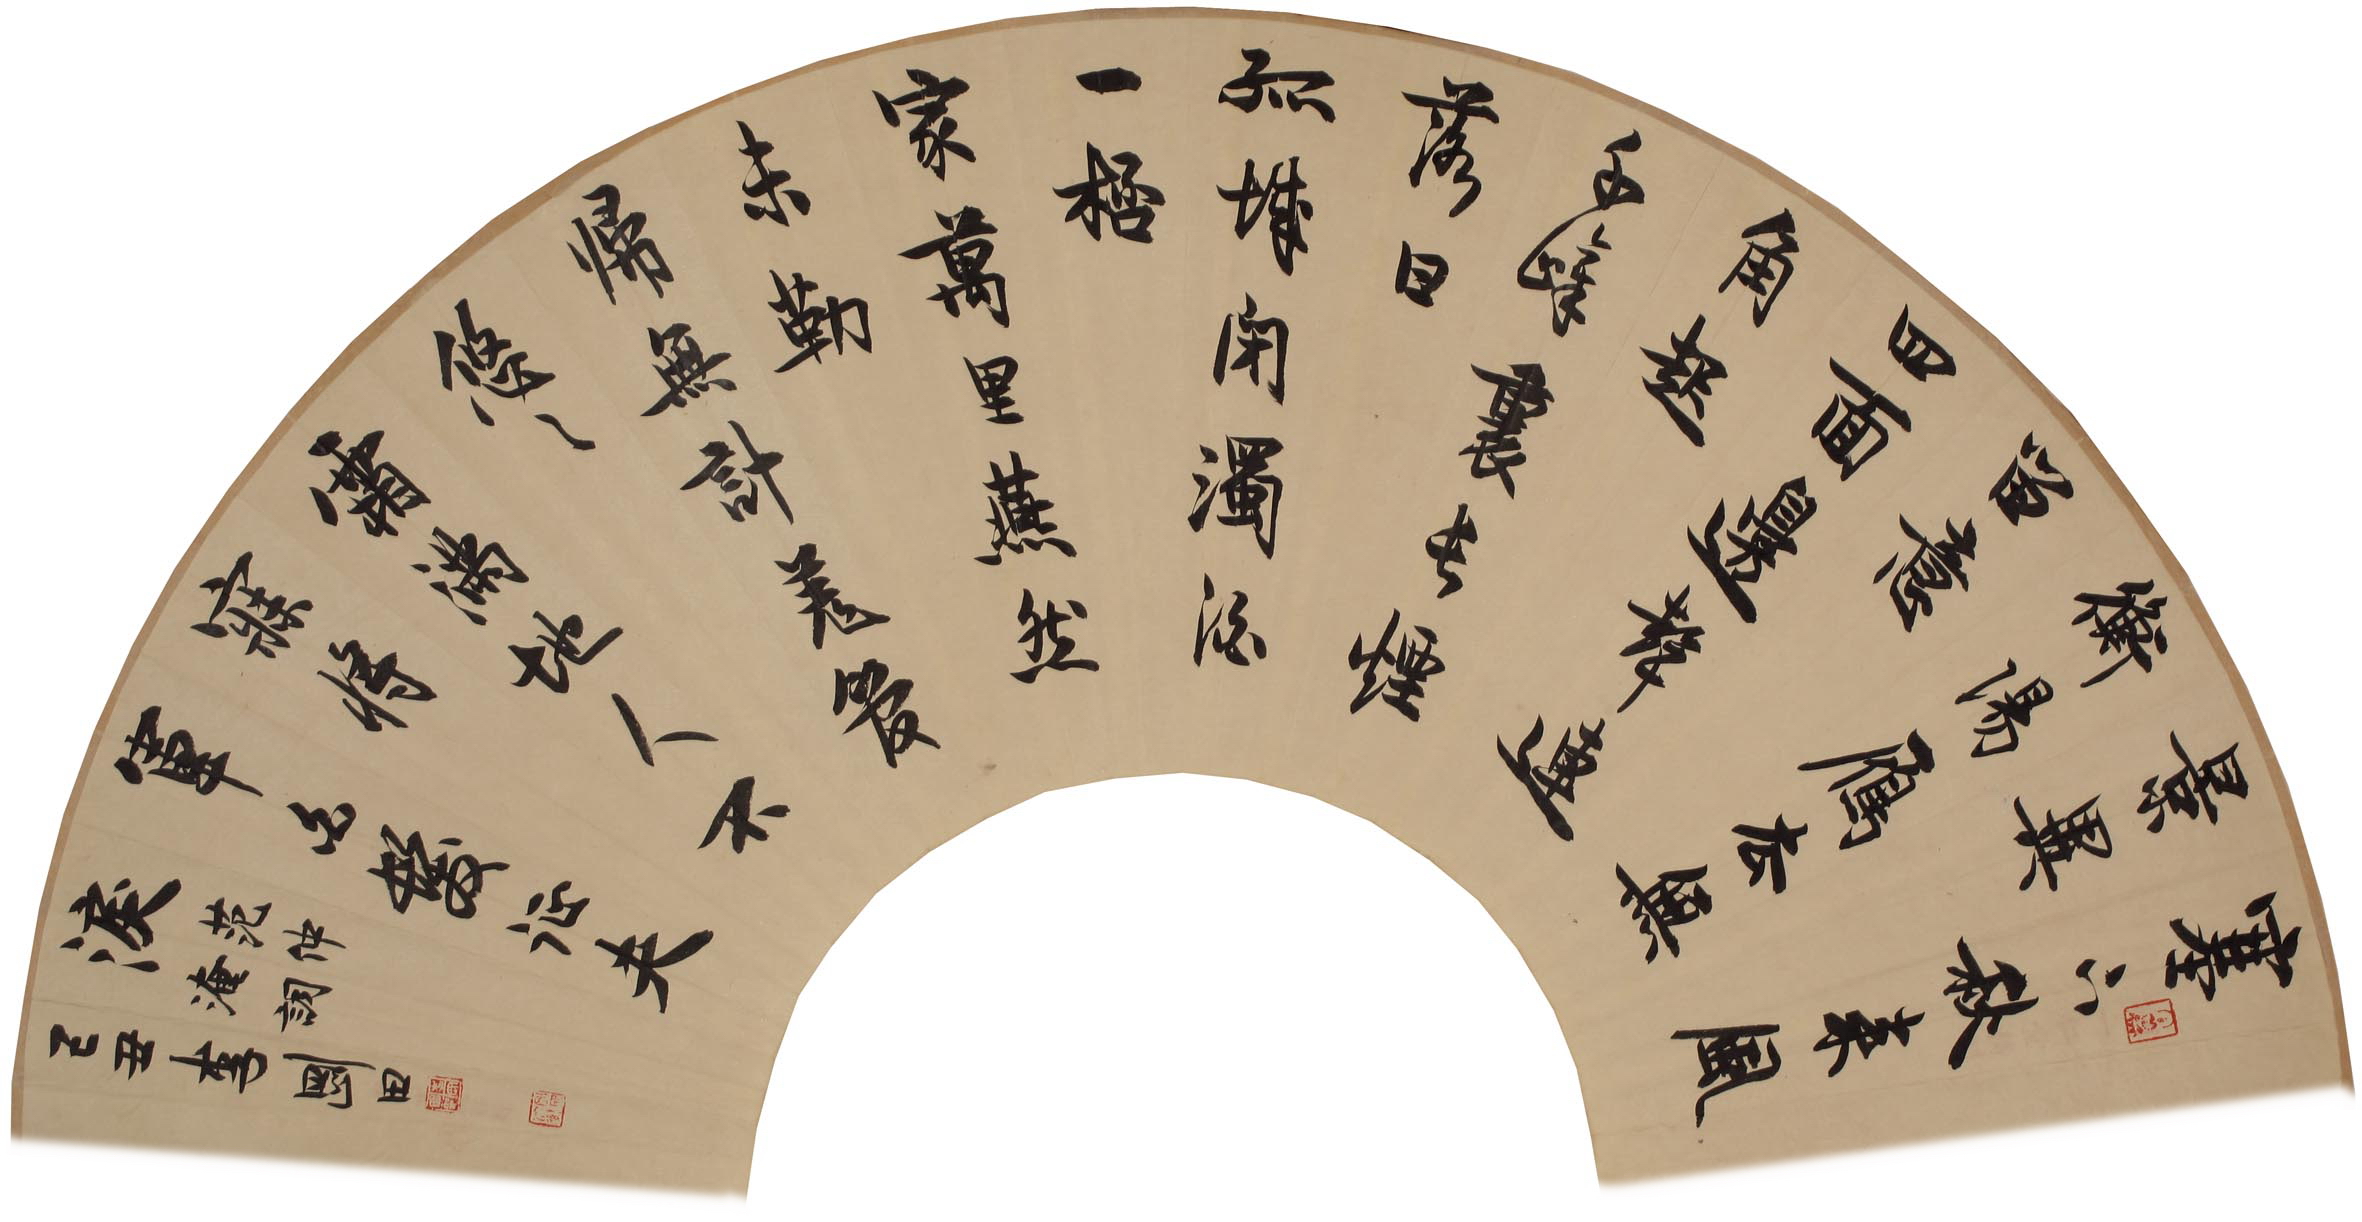 塞下秋来風
景異
衡陽雁去無
留意
四面邊聲連
角起
千嶂裏長煙
落日
孤城閉濁酒
一桮
家萬里燕然
未勒
帰無計羌管
悠々
霜滿地人不
寐將
軍白髮征夫
淚 范仲
淹詞
己丑李剛田